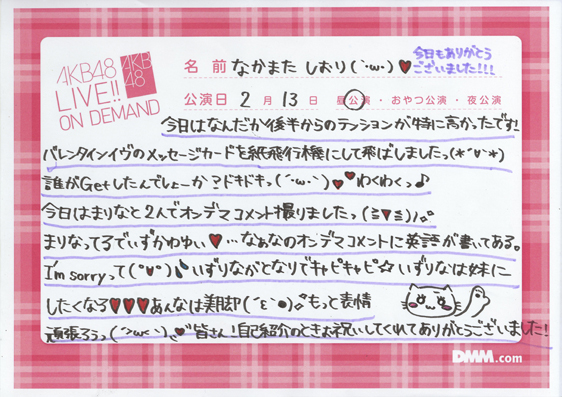 AKB48
LIVE!!
ON DEMAND
AKB
48
名前 なかまた しおり(`・ω・)♥
今日もありがとう
ございました!!!
公演日 2月13日 昼公演・おやつ公演・夜公演
今日はなんだか後半からのテンションが特に高かったです!
バレンタインイヴのメッセージカードを紙飛行機にして飛ばしましたっ(*´∀`*)
誰がGetしたんでしょーか?ドキドキっ(´・ω・`)♥♥わくわくっ♪
今日はまりなと2人でオンデマコメント撮りましたっ(≧▼≦)ノ。°
まりなってるでぃずかわゆい♥…なぁなのオンデマコメントに英語が書いてある。
I'm sorryって(°∀°)♪いずりながとなりでキャピキャピ☆いずりなは妹に
したくなる♥♥♥あんなは美脚(´ε`●)もっと表情
頑張ろうっ(´>ω<`)♥皆さん!自己紹介のときお祝いしてくれてありがとうございました!
DMM.com